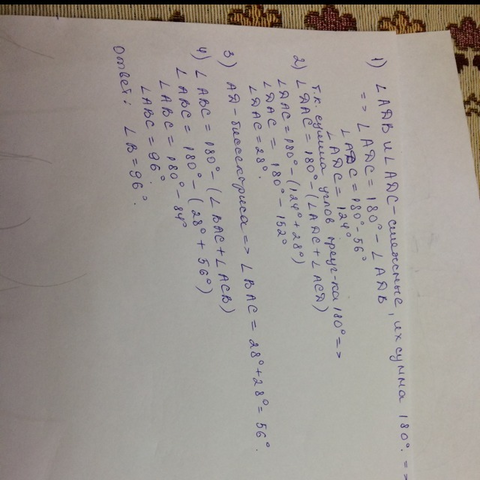 1) ∠ADB и ∠ADC - смежные, их сумма 180°. =>
=> ∠ADC = 180° - ∠ADB
∠ADC = 180° - 56°
∠ADC = 124°
Т.к. сумма углов треуг-ка 180° =>
2) ∠DAC = 180° - (∠ADC + ∠ACD)
∠DAC = 180° - (124° + 28°)
∠DAC = 180° - 152°
∠DAC = 28°.
3) AD - биссектриса => ∠BAC = 28° + 28° = 56°.
4) ∠ABC = 180° - (∠BAC + ∠ACB)
∠ABC = 180° - (28° + 56°)
∠ABC = 180° - 84°
∠ABC = 96°.
Ответ: ∠B = 96°.